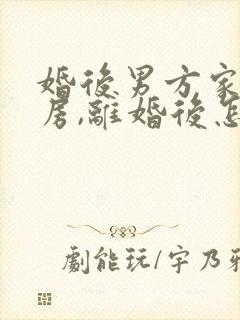 婚後男方家
居,離婚後怎
劇能玩/宇乃雅